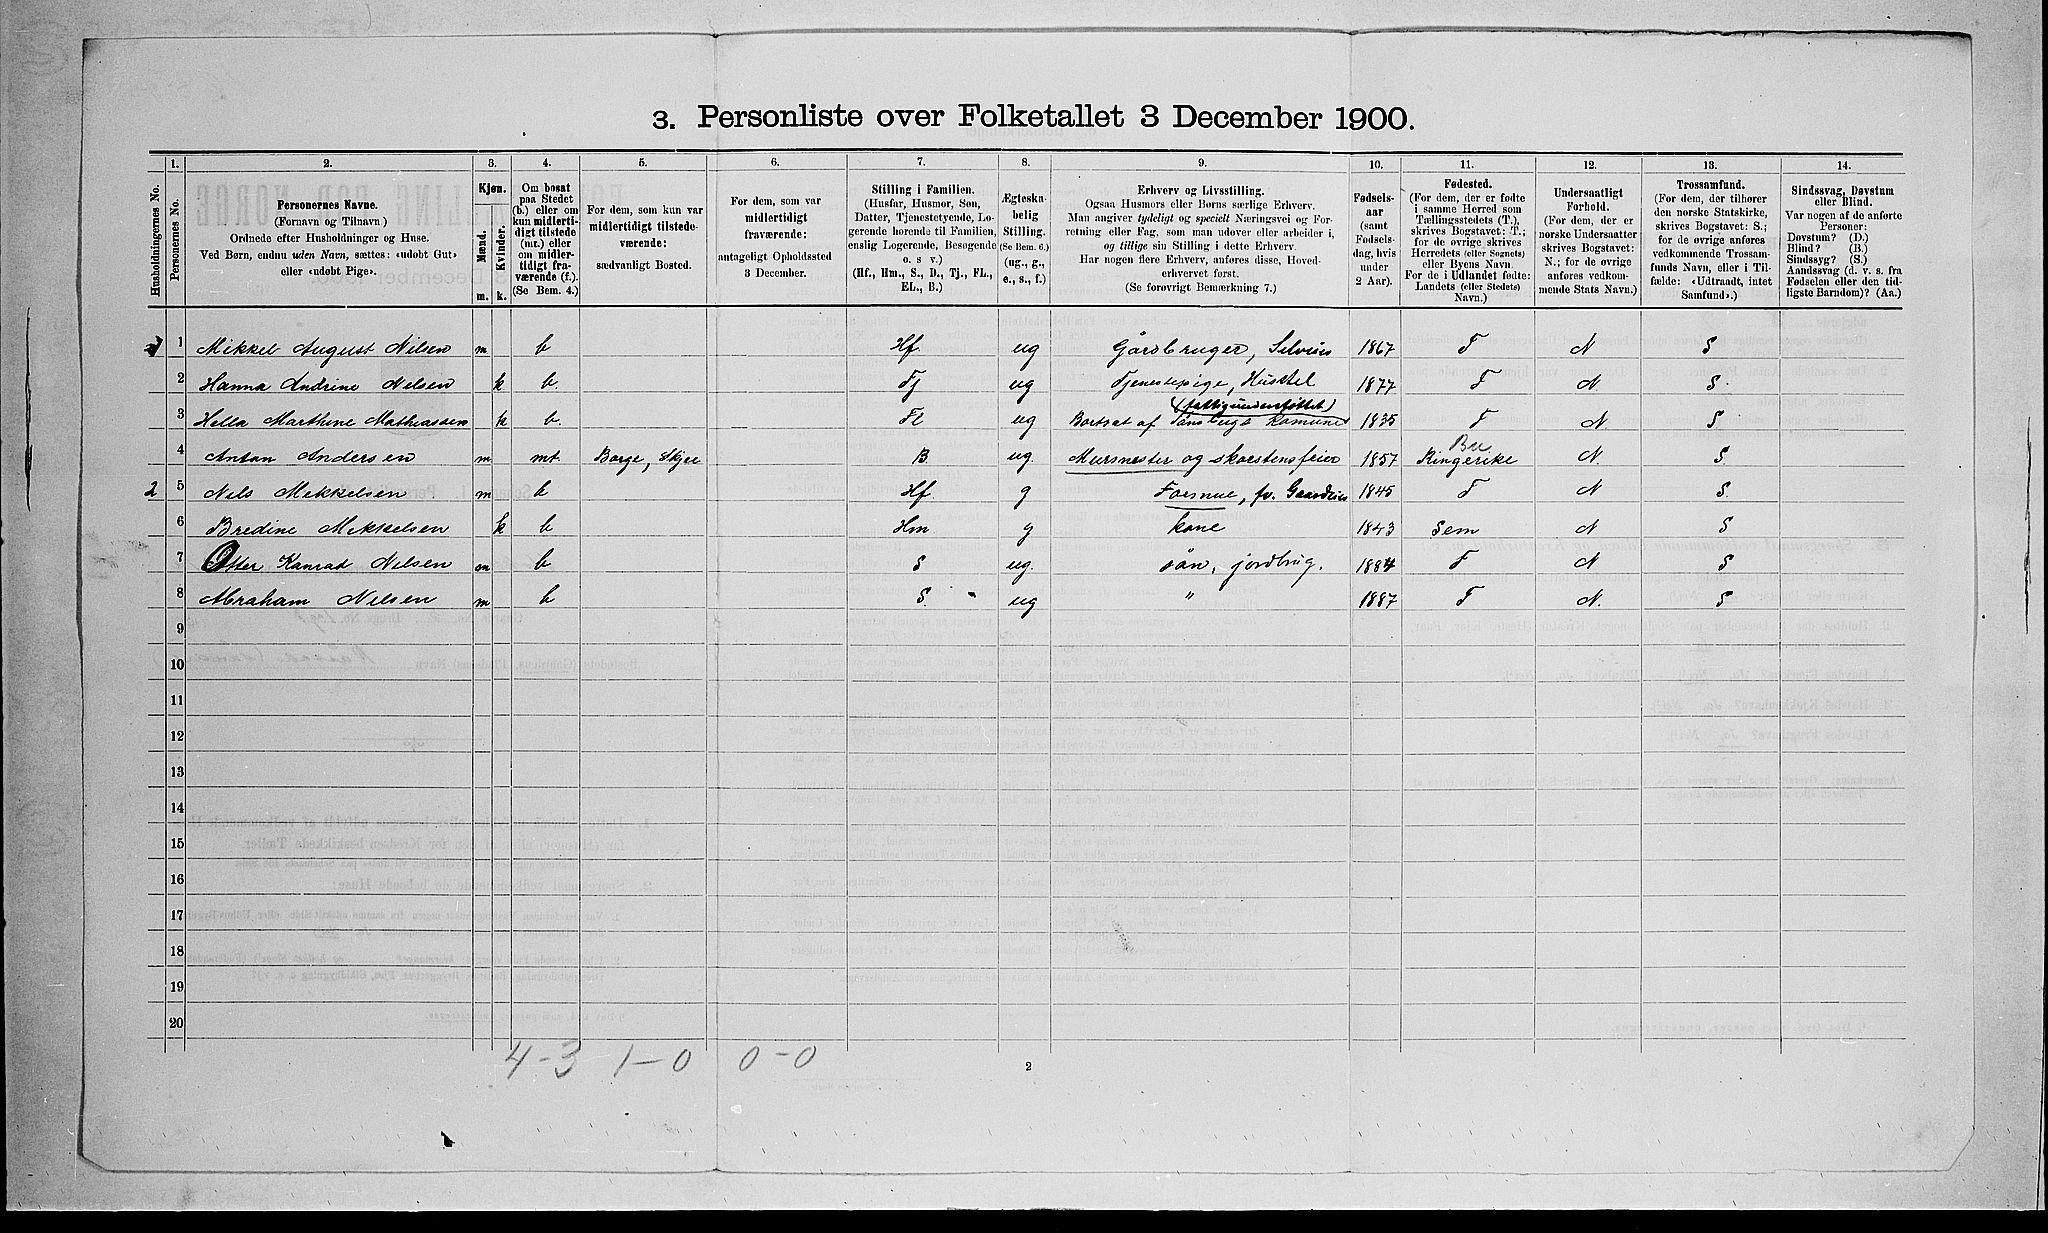 3. Personliste over Folketallet 3 December 1900.
Husholdningernes No.
1. 2. 3. 4. 5. 6. 7. 8. 9. 10. 11. 12. 13. 14.
Personernes No.
Personernes Navne.
(Fornavn og Tilnavn.)
Ordnede efter Husholdninger og Huse.
Ved Børn, endnu uden Navn, sættes: «udøbt Gut»
eller «udøbt Pige».
Kjøn.
Mænd.
Kvinder.
m. k.
Om bosat
paa Stedet
(b.) eller om
kun midlerti-
digt tilstede
(mt.) eller
om midler-
tidigt fra-
værende (f.).
(Se Bem. 4.)
For dem, som kun var
midlertidigt tilstede-
værende:
sædvanligt Bosted.
For dem, som var
midlertidigt
fraværende:
antageligt Opholdssted
3 December.
Stilling i Familien.
(Husfar, Husmor, Søn,
Datter, Tjenestetyende, Lo-
gerende hørende til Familien,
enslig Logerende, Besøgende
o. s. v.)
(Hf., Hm., S., D., Tj., FL.,
EL., B.)
Ægteska-
belig
Stilling.
(Se Bem. 6.)
(ug., g.,
e., s., f.)
Erhverv og Livsstilling.
Ogsaa Husmors eller Børns særlige Erhverv.
Man angiver tydeligt og specielt Næringsvei og For-
retning eller Fag, som man udøver eller arbeider i,
og tillige sin Stilling i dette Erhverv.
Har nogen flere Erhverv, anføres disse, Hoved-
erhvervet først.
(Se forøvrigt Bemærkning 7.)
Fødsels-
aar
(samt
Fødsels-
dag, hvis
under
2 Aar).
Fødested.
(For dem, der er fødte
i samme Herred som
Tællingsstedets (T.),
skrives Bogstavet: T.;
for de øvrige skrives
Herredets (eller Sognets)
eller Byens Navn.
For de i Udlandet fødte:
Landets (eller Stedets)
Navn.)
Undersaatligt
Forhold.
(For dem, der er
norske Undersaatter
skrives Bogstavet:
N.; for de øvrige
anføres vedkom-
mende Stats Navn.)
Trossamfund.
(For dem, der tilhører
den norske Statskirke,
skrives Bogstavet: S.;
for de øvrige anføres
vedkommende Trossam-
funds Navn, eller i Til-
fælde: «Udtraadt, intet
Samfund».)
Sindssvag, Døvstum
eller Blind.
Var nogen af de anførte
Personer:
Døvstum? (D.)
Blind? (B.)
Sindssyg? (S.)
Aandssvag (d. v. s. fra
Fødselen eller den tid-
ligste Barndom)? (Aa.)
1 Mikkel August Nilsen m b Hf. ug Gårdbruger, Selveier 1867 T N S
2 Hanna Andrine Nilsen k b. Tj ug Tjenestepige, Husstel 1877 T N S.
(fattigunderstøttet)
3 Hella Marthine Mathiassen k b. Fl ug Bortsat af Tønsbergs Komune 1835 T N S
4 Anton Andersen m mt. Borge, Skjee B. ug. Mursmester og skorstensfeier 1857 Ringerike N. S.
2 5 Nils Mikkelsen m b Hf g Forsnue, fv. Gaardeier 1845 T N S.
6 Bredine Mikkelsen k b Hm g kone 1843 Sem N S
7 Otter Konrad Nilsen m b S ug. søn, jordbrug. 1884 T N S
8 Abraham Nilsen m b S. ug " 1887 T N. S
9
10
11
12
13
14
15
16
17
18
19
20
4-3 1-0 0-0
2